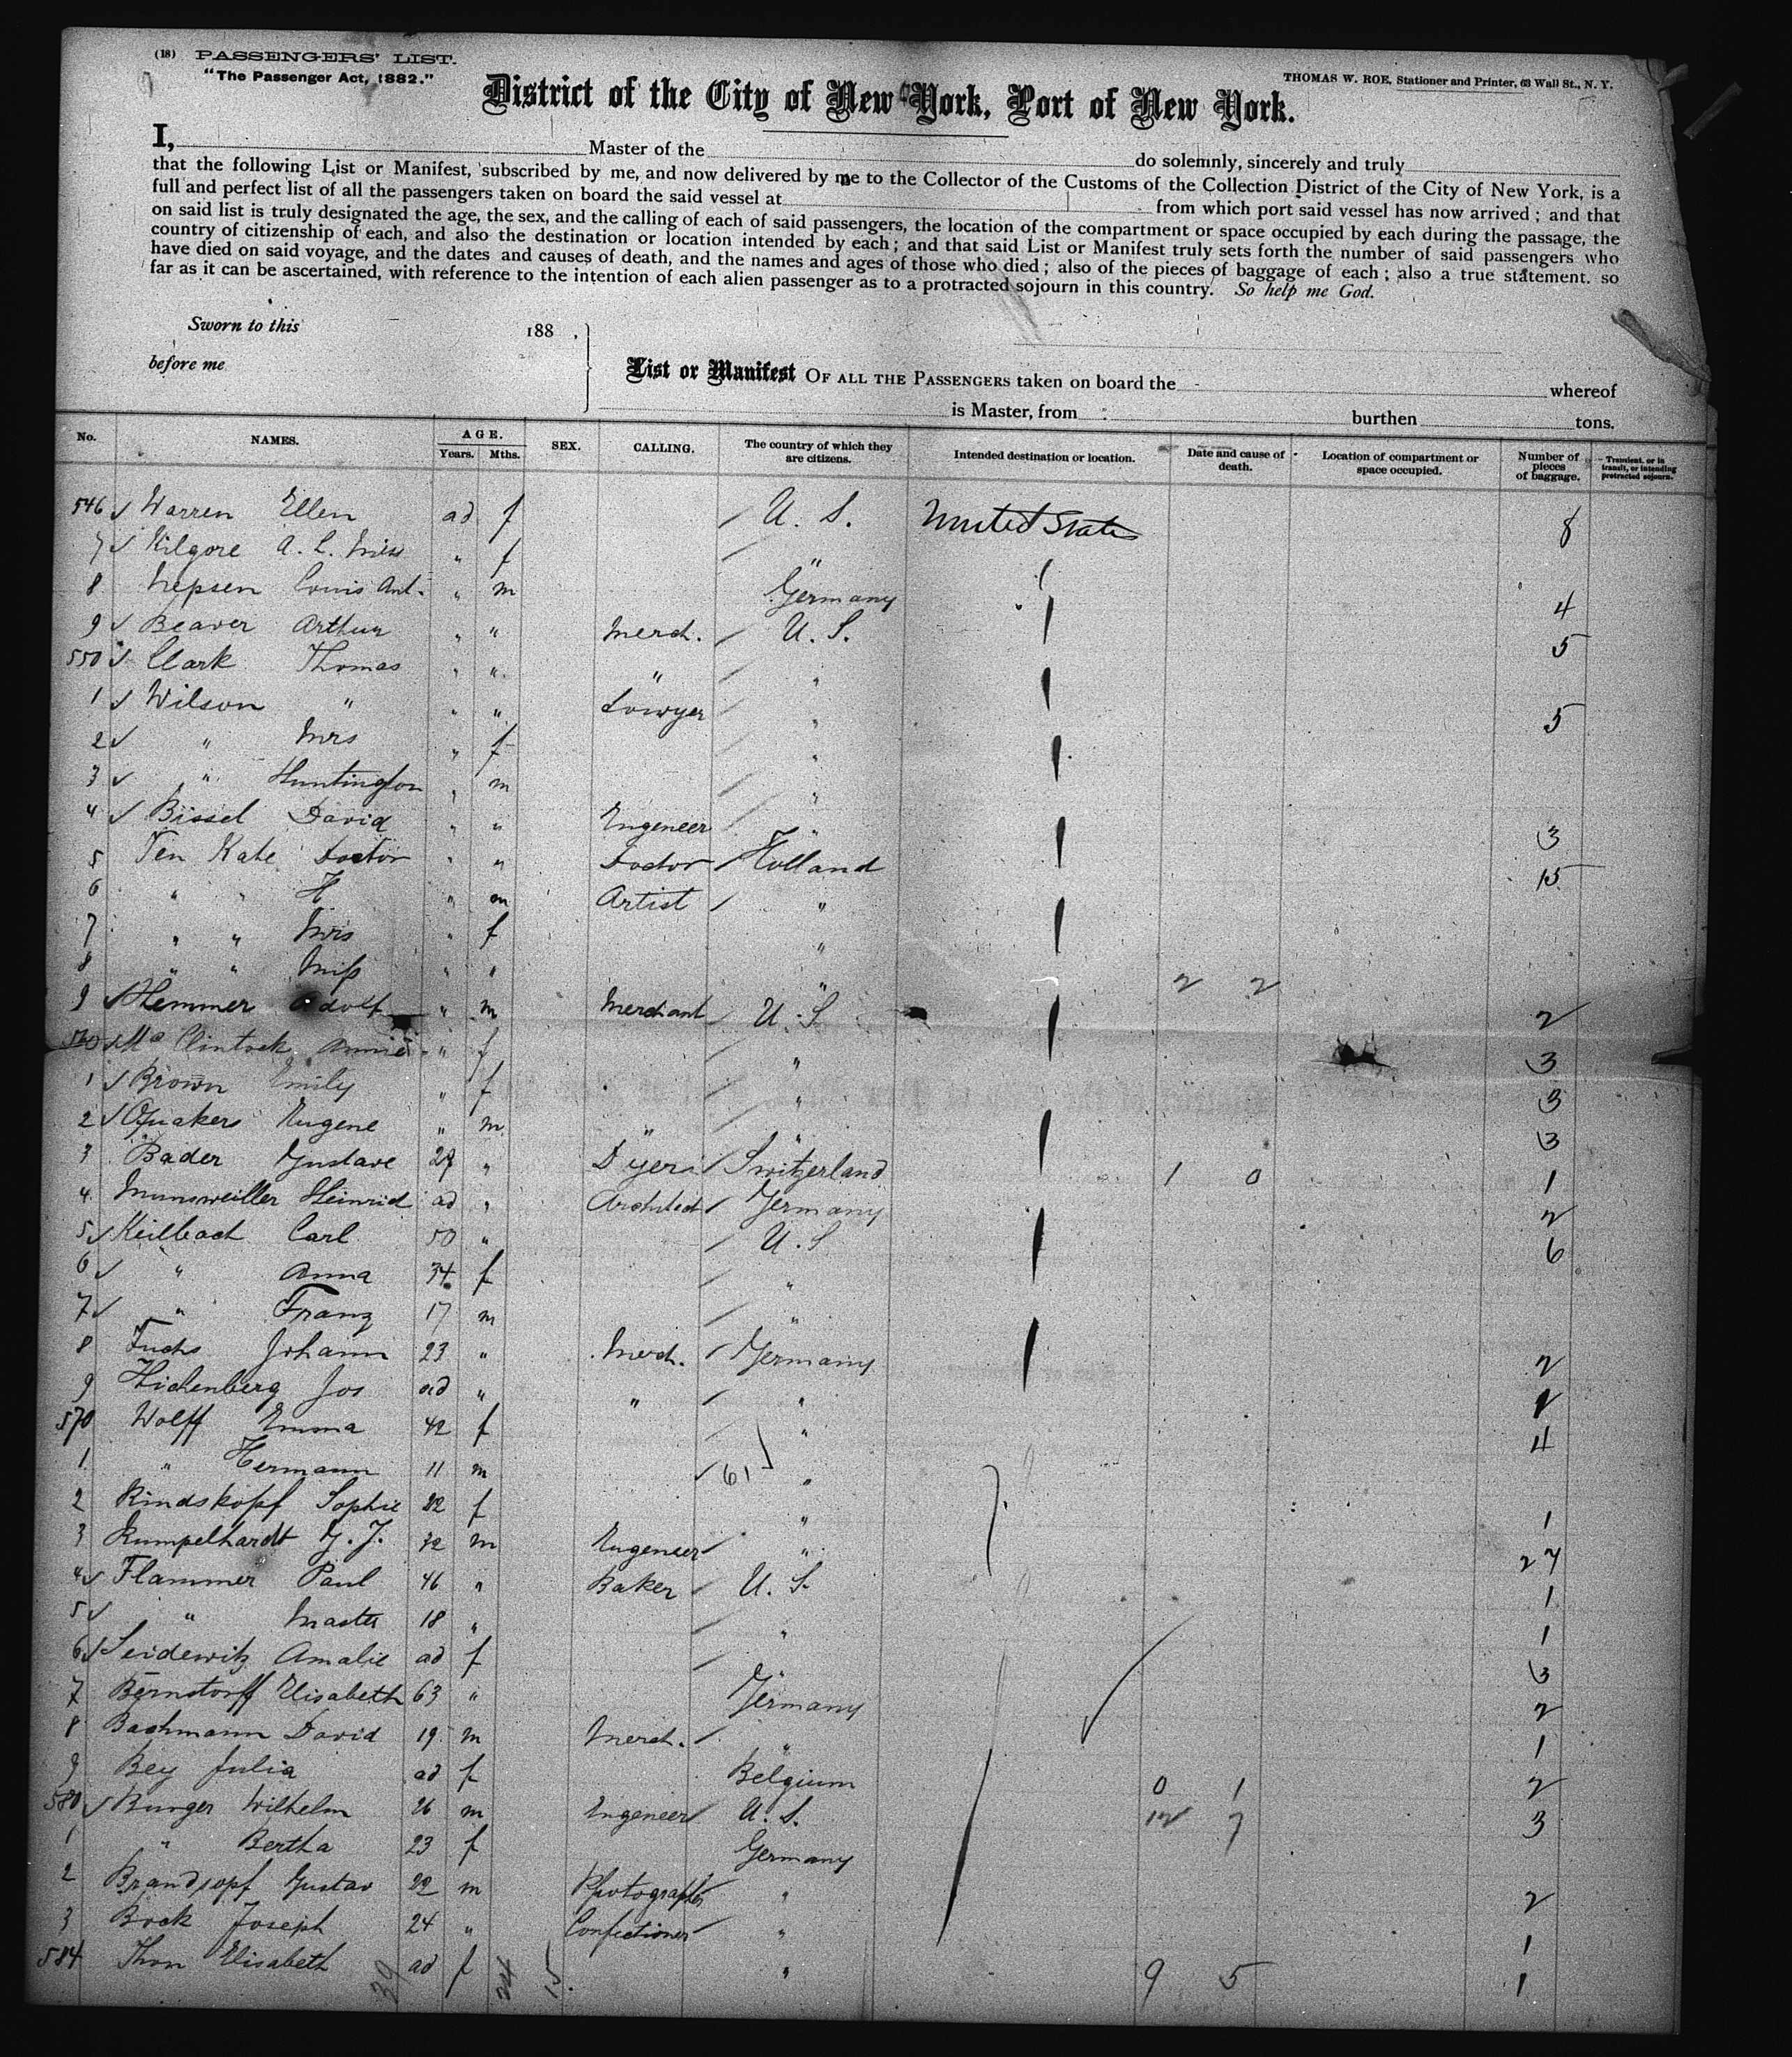 (18) PASSENGERS' LIST.
"The Passenger Act, 1882."
THOMAS W. ROE, Stationer and Printer, 63 Wall St., N. Y.
District of the City of New York, Port of New York.
I, Master of the do solemnly, sincerely and truly
that the following List or Manifest, subscribed by me, and now delivered by me to the Collector of the Customs of the Collection District of the City of New York, is a
full and perfect list of all the passengers taken on board the said vessel at from which port said vessel has now arrived; and that
on said list is truly designated the age, the sex, and the calling of each of said passengers, the location of the compartment or space occupied by each during the passage, the
country of citizenship of each, and also the destination or location intended by each; and that said List or Manifest truly sets forth the number of said passengers who
have died on said voyage, and the dates and causes of death, and the names and ages of those who died; also of the pieces of baggage of each; also a true statement. so
far as it can be ascertained, with reference to the intention of each alien passenger as to a protracted sojourn in this country. So help me God.
Sworn to this 188 ,
before me
List or Manifest OF ALL THE PASSENGERS taken on board the whereof
is Master, from burthen tons.
No. NAMES. AGE. Years. Mths. SEX. CALLING. The country of which they are citizens. Intended destination or location. Date and cause of death. Location of compartment or space occupied. Number of pieces of baggage. Transient, or in transit, or intending protracted sojourn.
546 ✓ Warren Ellen ad f / U. S. United States 8
7 ✓ Kilgore A. L. Miss " f / "
8 Louis Ant. " m Germany 4
9 ✓ Beaver Arthur " " Merch. / U. S. 5
550 ✓ Clark Thomas " " " / "
1 ✓ Wilson " " " Lowyer / " 5
2 ✓ " Mrs " f "
3 ✓ " Huntington " m / "
4 ✓ Bissel David " " Engeneer / " 3
5 Ten Kate Doctor " " Doctor / Holland 15
6 " " H " m Artist / "
7 " " Mrs " f "
8 " " Miss " " " 2 2
9 ✓ Hemmer Adolf " m Merchant / U. S 2
560 ✓ Mc Clintock Annie " f / " 3
1 ✓ Brown Emily " f / " 3
2 ✓ Quakers Eugene " m " / " 3
3 Bader Gustave 29 " Dyer / Switzerland 1 0 1
4 Munsweiller Heinrich ad " Architect / Germany 2
5 ✓ Keilbach Carl 50 " / U. S 6
6 ✓ " Anna 34 f / "
7 ✓ " Franz 17 m / "
8 Fuchs Johann 23 " Merch. / Germany 2
9 Hichenberg Jos ad " " / "
570 Wolff Emma 42 f / " 4
1 " Hermann 11 m / 61 "
2 Rindskopf Sophie 22 f " 1
3 Rumpelhardt G. J. 32 m Engeneer / " 27
4 ✓ Flammer Paul 46 " Baker / U. S. 1
5 ✓ " Master 18 " / " 1
6 ✓ Seidewitz Amalie ad f / " 3
7 Bernstorff Elisabeth 63 " Germany 2
8 Bachmann David 19 m Merch. / " 1
9 Bey Julia ad f Belgium 0 1 2
580 ✓ Burger Wilhelm 26 m Engeneer / U. S. 12 7 3
1 " Bertha 23 f Germany
2 Gustav 22 m Photographer / " 2
3 Bock Joseph 24 " Confectioner / " 1
584 Thon Elisabeth ad f " 9 5 1
39 24 15.